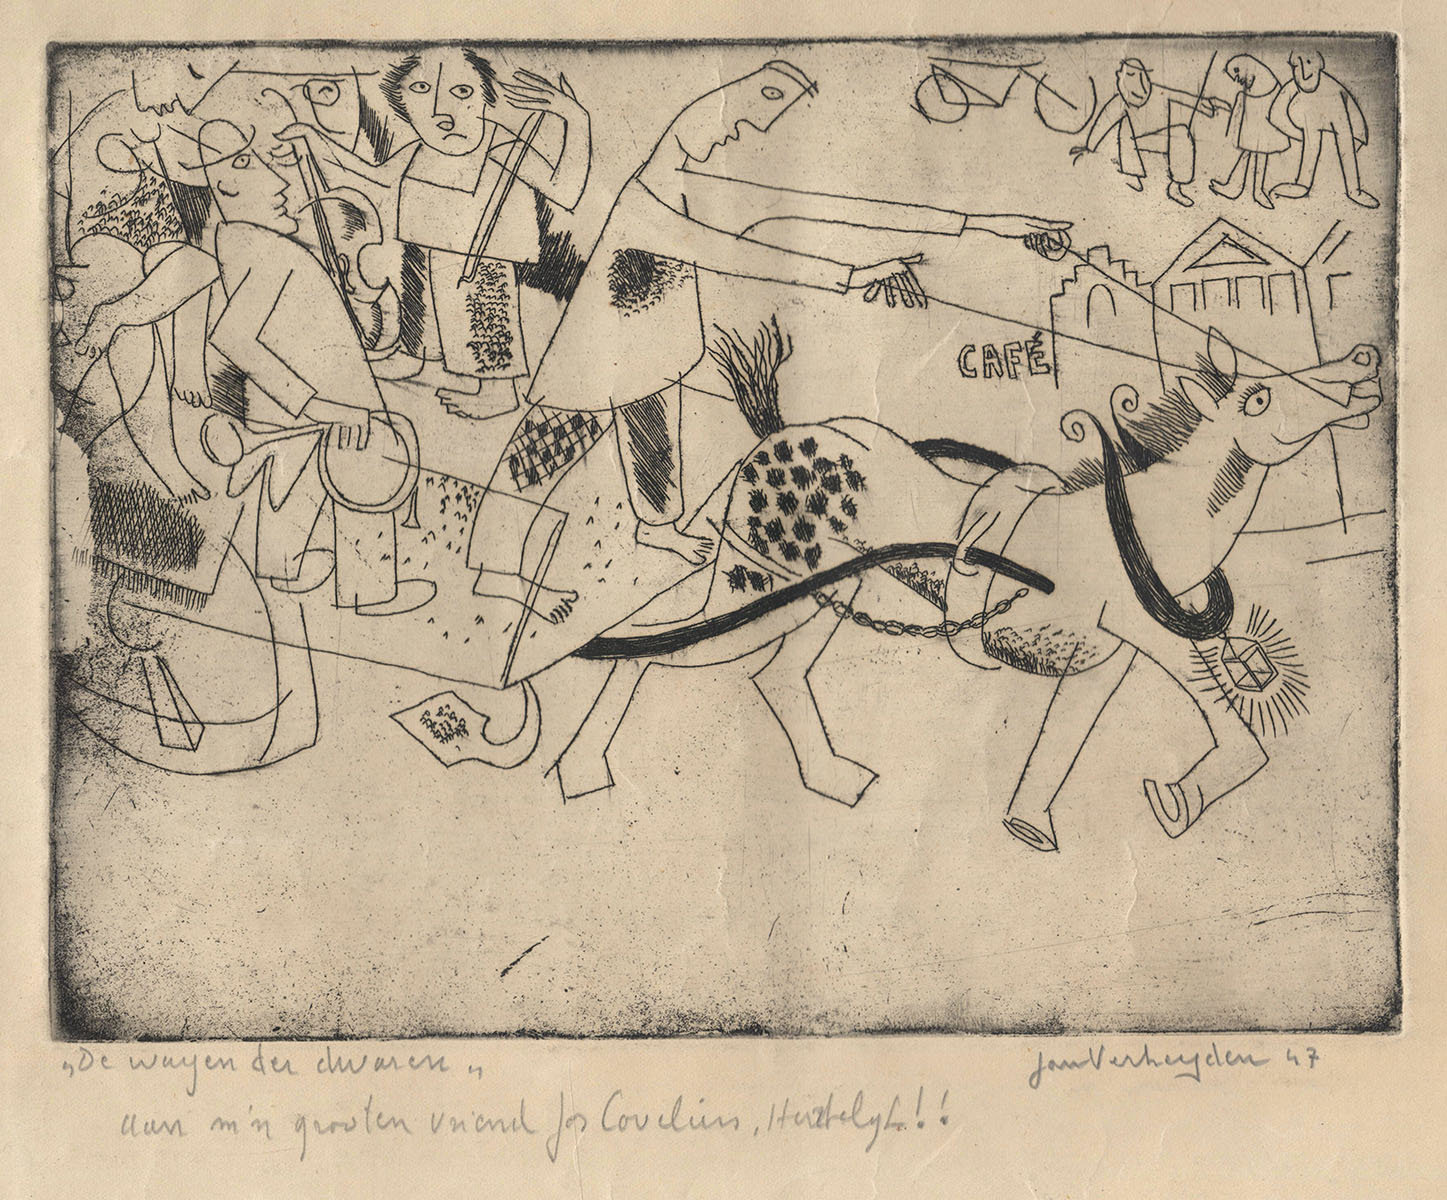 CAFÉ
„De wagen der dwazen„
Jan Verheyden 47
aan m'n grooten vriend Jos Covelius, Hartelyk!!